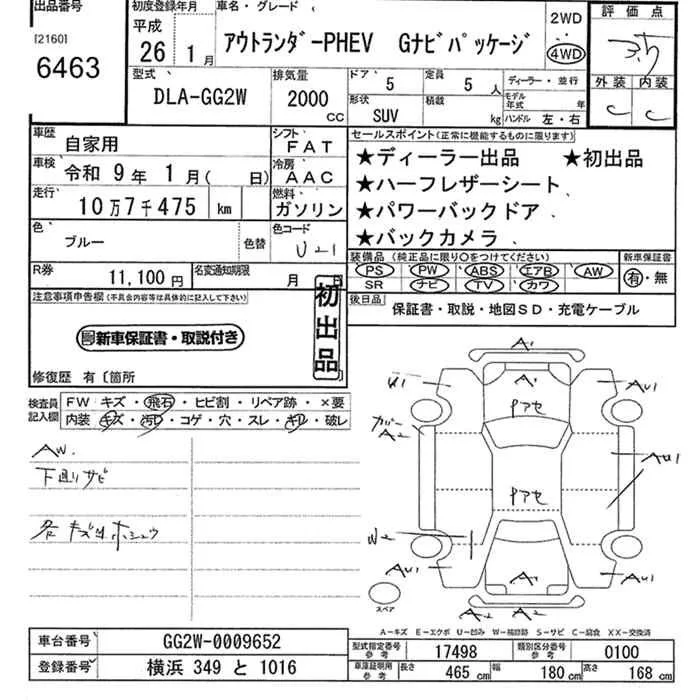 出品番号
[2160]
6463
初度登録年月
平成
26 1月
車名・グレード
アウトランダーPHEV Gナビパッケージ
2WD
4WD
評価点
3.5
外装 内装
C C
型式
DLA-GG2W
排気量
2000 CC
ドア 5
形状 SUV
定員 5人
積載 kg
ディーラー・並行
モデル年式 年
ハンドル 左・右
車歴 自家用
車検 令和 9年 1月( 日)
走行 10万7千475 km
色 ブルー
色替
色コード U21
シフト FAT
冷房 AAC
燃料 ガソリン
セールスポイント(正常に機能するものに限ります)
★ディーラー出品 ★初出品
★ハーフレザーシート
★パワーバックドア
★バックカメラ
R券 11,100円
名変通知期限 月 日
装備品(純正品に限り○をつけてください)
PS PW ABS エアB AW
SR ナビ TV カワ
新車保証書
有・無
後日品 保証書・取説・地図SD・充電ケーブル
注意事項申告欄(不具合内容等は具体的に記入して下さい)
新車保証書・取説付き
初出品
修復歴 有〔箇所
検査員記入欄
FW キズ・飛石・ヒビ割・リペア跡・×要
内装 キズ・汚レ・コゲ・穴・スレ・キレ・破レ
AW.
下廻りサビ
各キズ凹ホシュウ
A1
U1
AU1
A1
Pアセ
カバーA2
AU1
Pアセ
W2
AU1
A1
AU1
スペア
A2 A2
A-キズ E-エクボ U-凹み W-補修跡 S-サビ C-腐食 XX-交換済
車台番号 GG2W-0009652
登録番号 横浜 349 と 1016
型式指定番号参考 17498
類別区分番号参考 0100
車庫証明用参考 長さ 465cm 幅 180cm 高さ 168cm